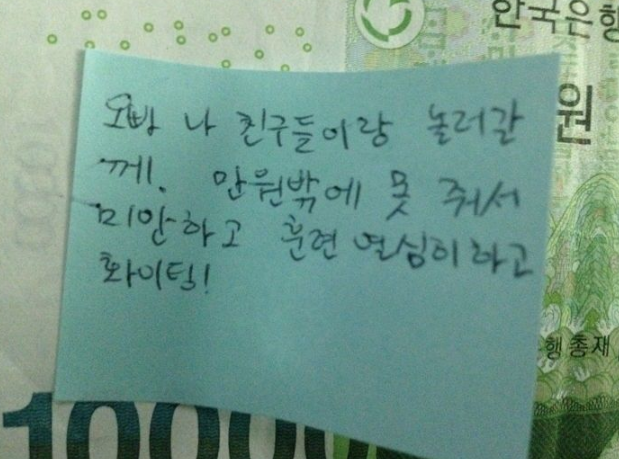 한국은행
원
오빠 나 친구들이랑 놀러갈
께. 만원밖에 못 줘서
미안하고 훈련 열심히하고
화이팅!
행 총재
10000